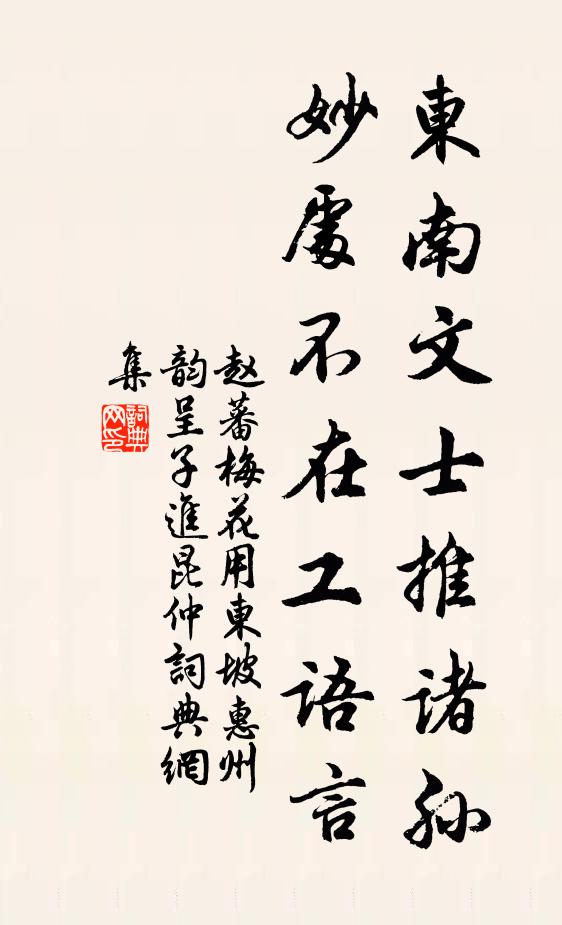 東南文士推诸孙
妙處不在工语言
赵蕃梅花用東坡惠州
韵呈子進昆仲詞典網
集
詞典
网印